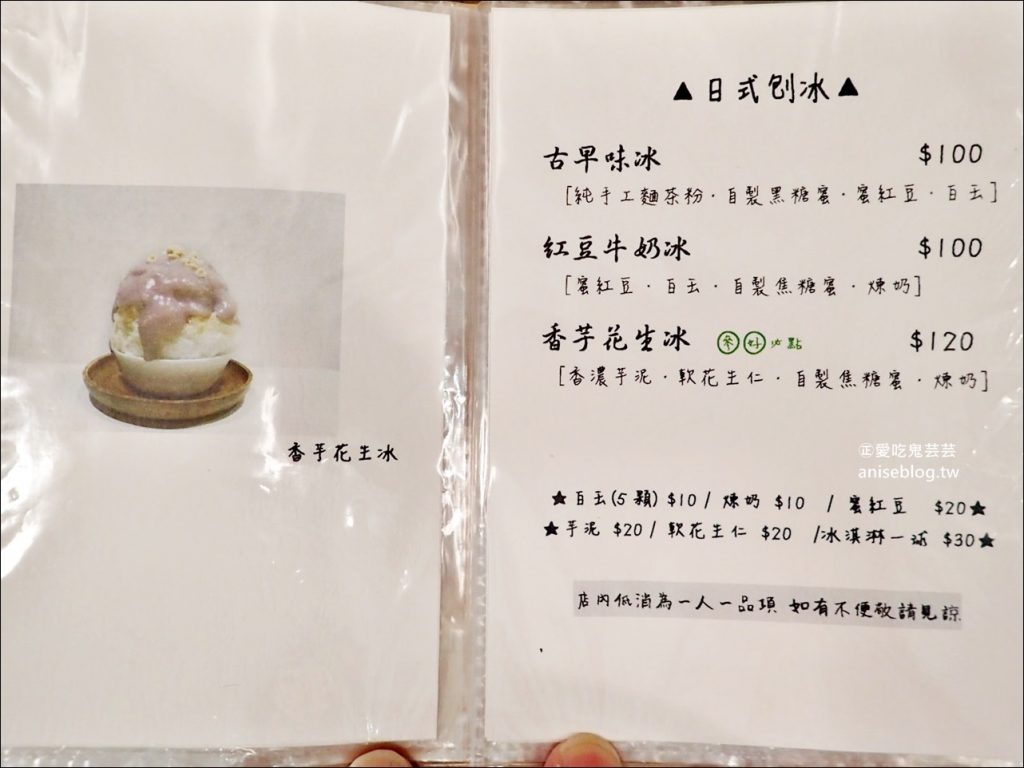 香芋花生冰
▲日式刨冰▲
古早味冰 $100
[純手工麵茶粉·自製黑糖蜜·蜜紅豆·白玉]
紅豆牛奶冰 $100
[蜜紅豆·白玉·自製焦糖蜜·煉奶]
香芋花生冰 必點 $120
[香濃芋泥·軟花生仁·自製焦糖蜜·煉奶]
㊣愛吃鬼芸芸
aniseblog.tw
★白玉(5顆) $10 / 煉奶 $10 / 蜜紅豆 $20★
★芋泥 $20 / 軟花生仁 $20 /冰淇淋一球 $30★
店內低消為一人一品項 如有不便敬請見諒